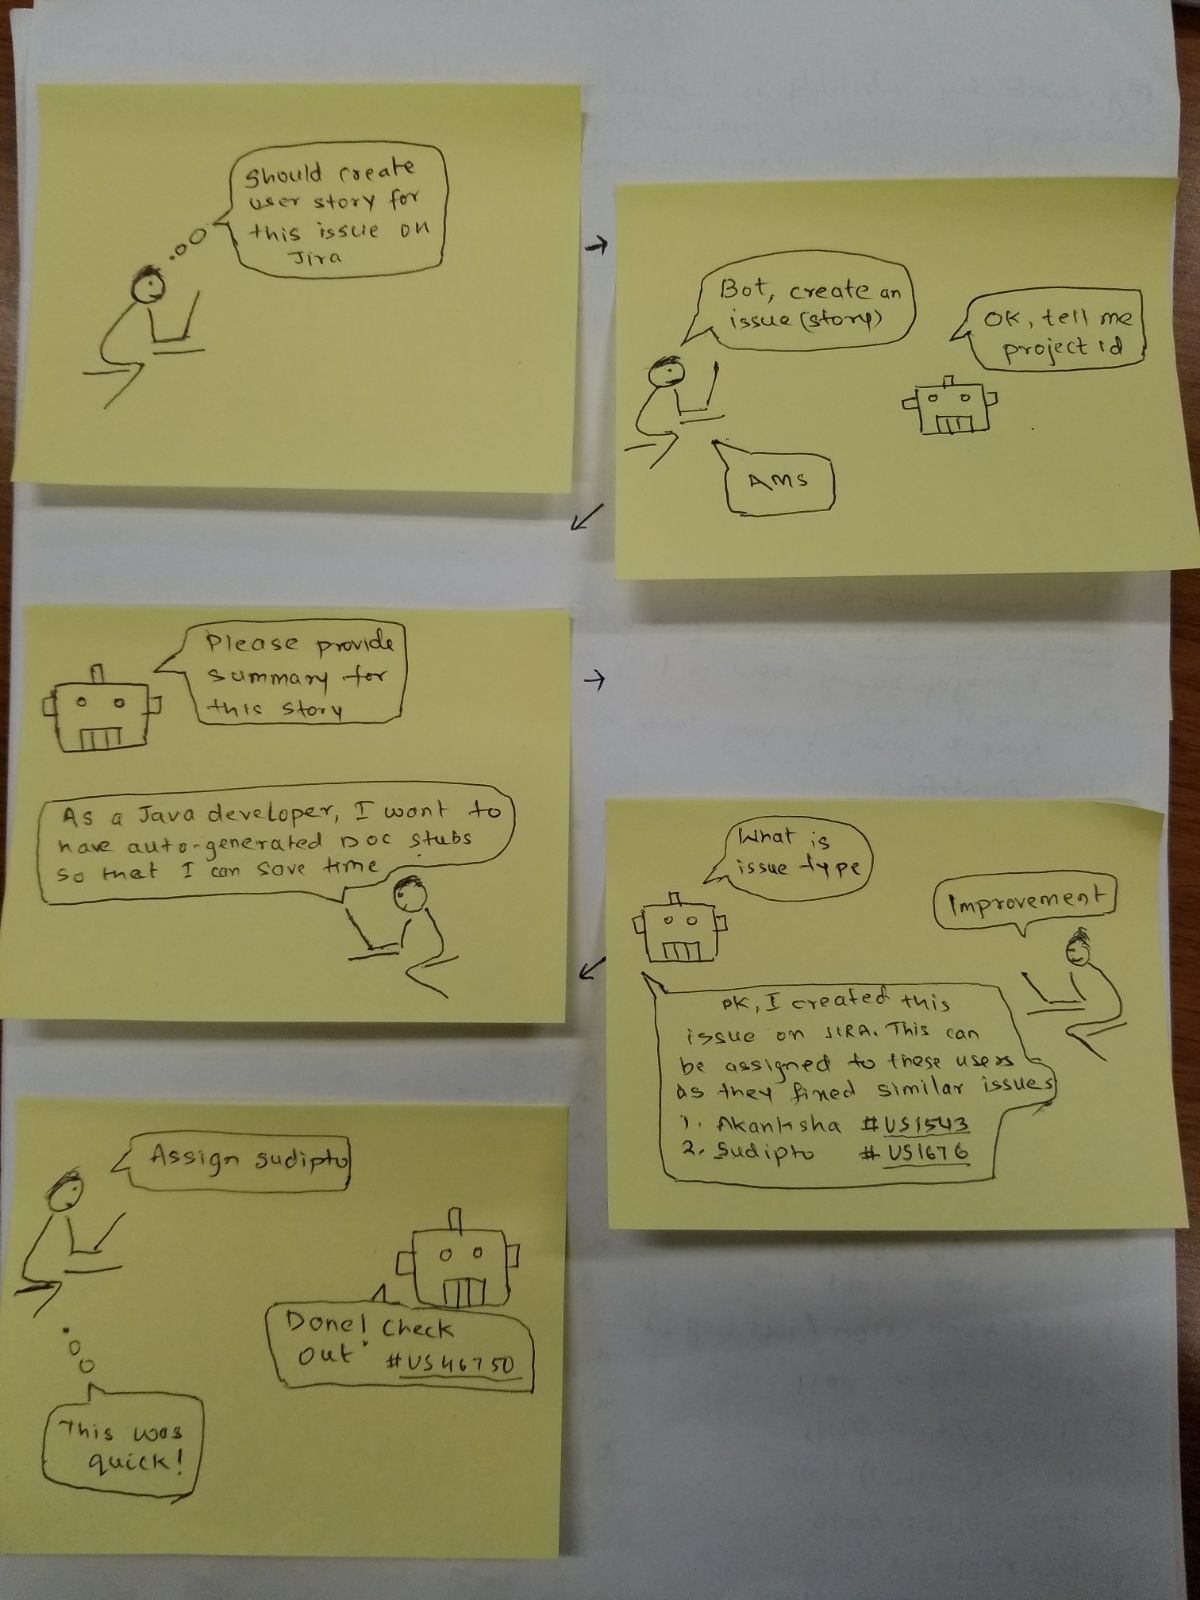 Should create
user story for
this issue on
Jira
→
Bot, create an
issue (story)
OK, tell me
project id
AMS
Please provide
summary for
this story
→
As a Java developer, I want to
have auto-generated DOC stubs
so that I can save time
What is
issue type
Improvement
OK, I created this
issue on JIRA. This can
be assigned to these users
as they fixed similar issues
1. Akanksha #US1543
2. Sudipto #US1676
Assign sudipto
Done! Check
out #US46750
This was
quick!